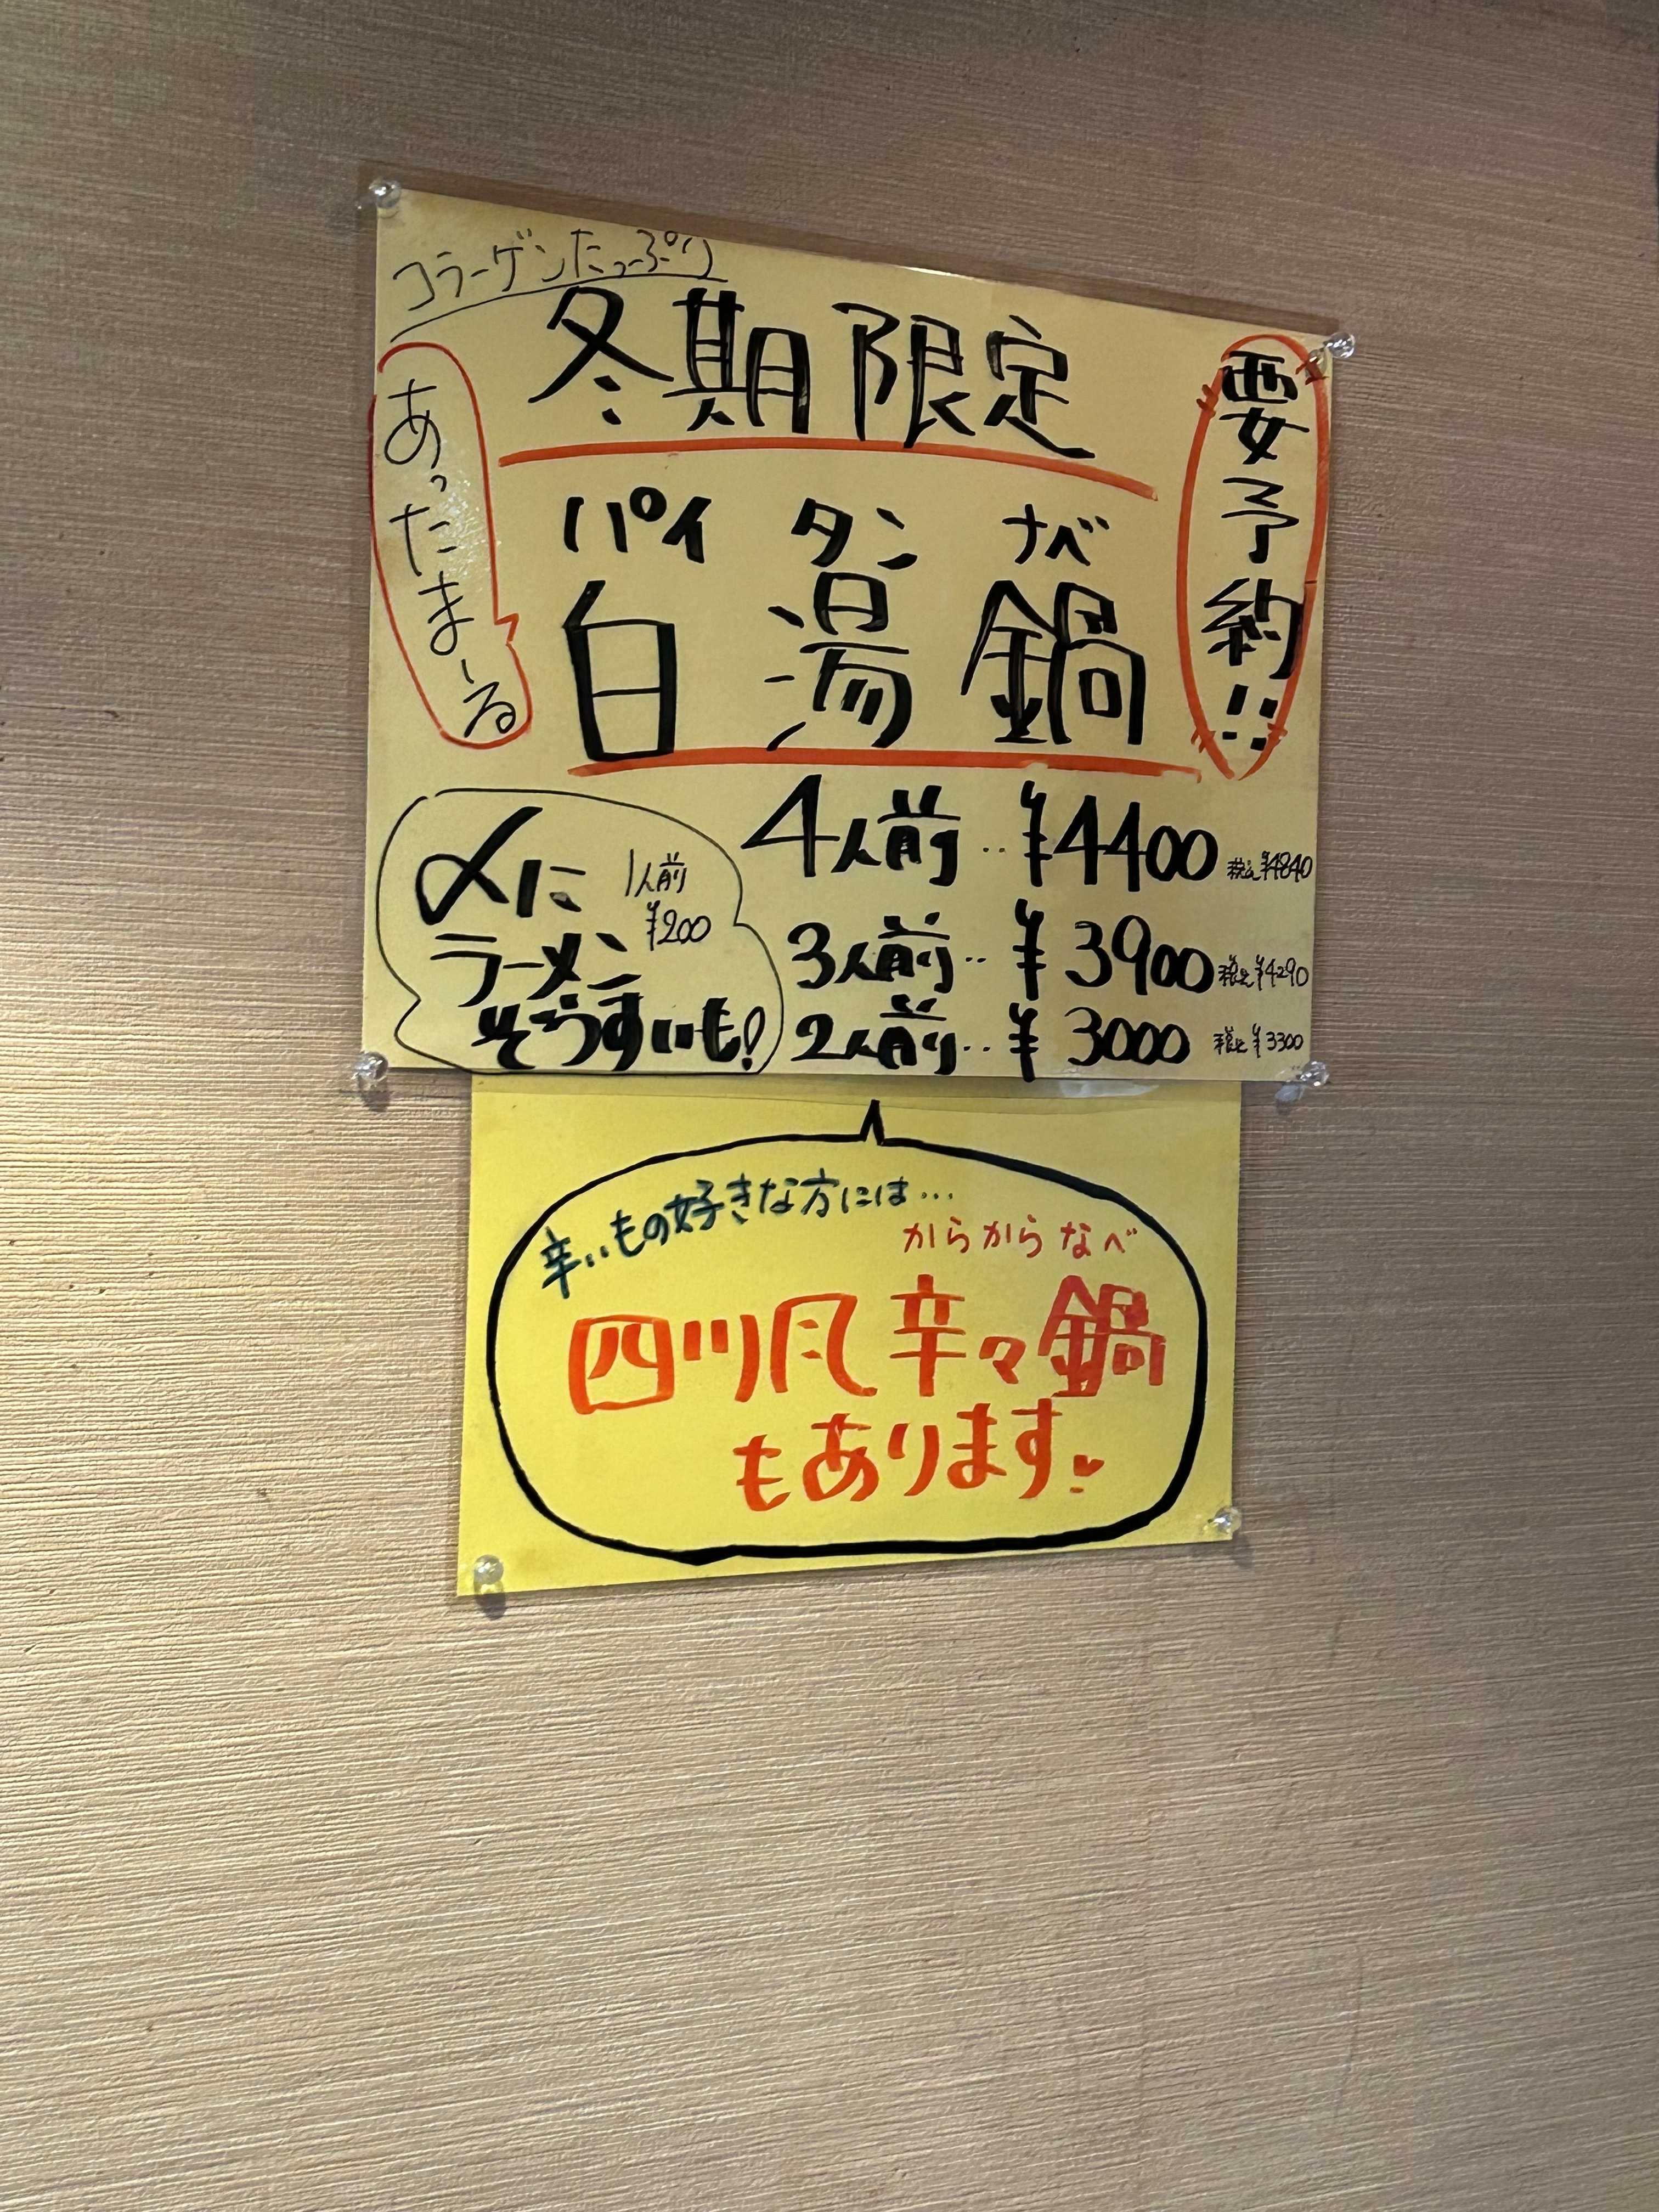 コラーゲンたっぷり
冬期限定
要予約!!
あったまーる
パイタンナベ
白湯鍋
4人前‥¥4400 税込¥4840
3人前‥¥3900 税込¥4290
2人前‥¥3000 税込¥3300
〆に
1人前
¥200
ラーメン
ぞうすいも!
辛いもの好きな方には…
からからなべ
四川風辛々鍋
もあります